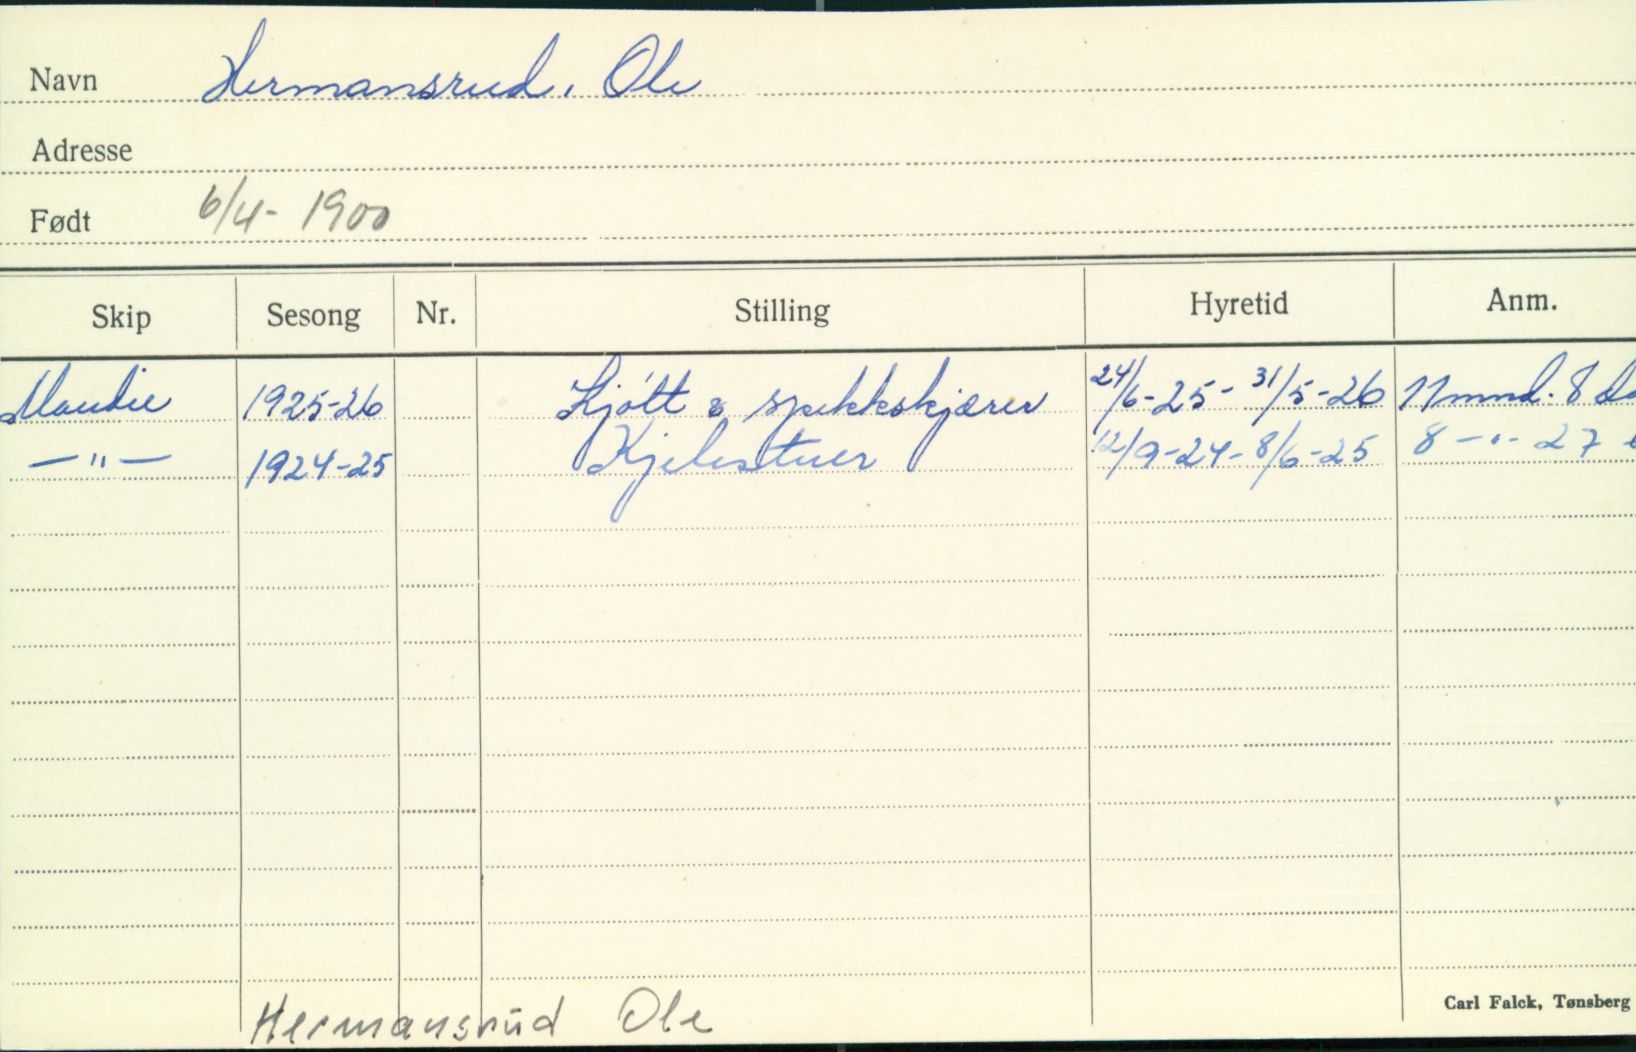 Navn Hermansrud, Ole
Adresse
Født 6/4- 1900
Skip Sesong Nr. Stilling Hyretid Anm.
Maudie 1925-26 Kjøtt & spekkskjærer 24/6-25- 31/5-26 11 mnd. 8 da
— " — 1924-25 Kjelestuer 12/9-24- 8/6-25 8 - " - 27
Hermansrud Ole
Carl Falck, Tønsberg